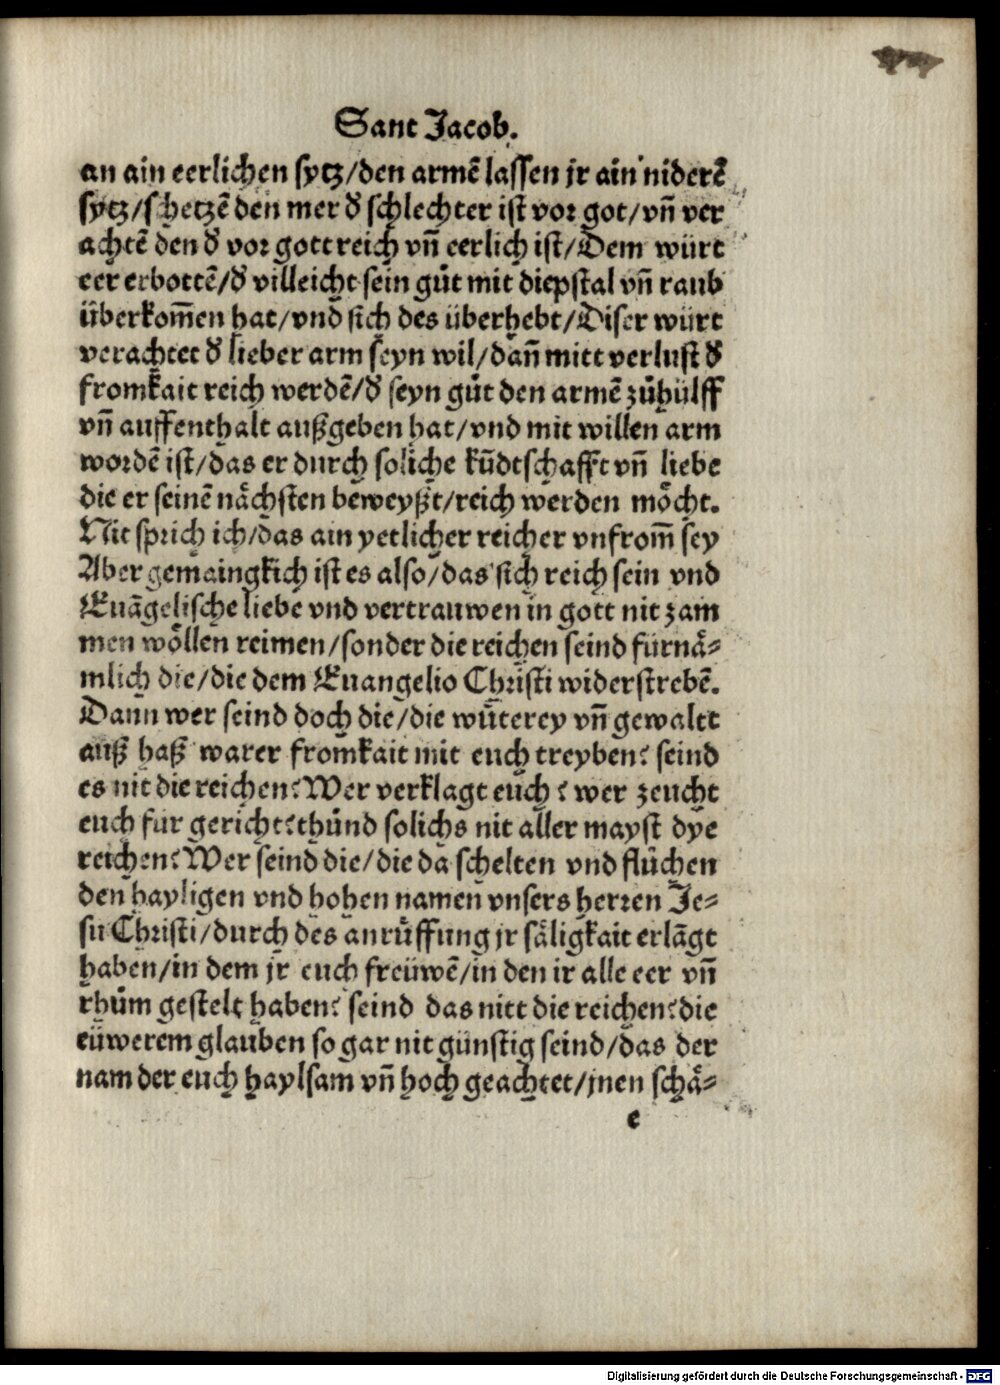 Sant Jacob.
an ain eerlichen sytz/den armẽ lassen jr ain niderẽ
sytz/schetzẽ den mer đ schlechter ist vor got/vñ ver
achtẽ den đ vor gott reich vñ eerlich ist/Dem würt
eer erbottẽ/đ villeicht sein gůt mit diepstal vñ raub
überkom̃en hat/vnd sich des überhebt/Diser würt
verachtet đ lieber arm seyn wil/dañ mitt verlust đ
fromkait reich werdẽ/đ seyn gůt den armẽ zůhülff
vñ auffenthalt außgeben hat/vnd mit willen arm
wordẽ ist/das er durch soliche kũdtschafft vñ liebe
die er seinẽ nächsten beweyßt/reich werden möcht.
Nit sprich ich/das ain yetlicher reicher vnfrom̃ sey
Aber gemaingkich ist es also/das sich reich sein vnd
Euãgelische liebe vnd vertrauwen in gott nit zam
men wöllen reimen/sonder die reichen seind fürnä-
mlich die/die dem Euangelio Christi widerstrebẽ.
Dann wer seind doch die/die wůterey vñ gewaltt
auß haß warer fromkait mit euch treyben? seind
es nit die reichen? Wer verklagt euch? wer zeucht
euch für gericht? thůnd solichs nit aller mayst dye
reichen? Wer seind die/die da schelten vnd flůchen
den hayligen vnd hohen namen vnsers herren Je-
su Christi/durch des anrůffung jr säligkait erlãgt
haben/in dem jr euch freüwẽ/in den ir alle eer vñ
rhům gestelt haben? seind das nitt die reichen? die
eüwerem glauben so gar nit günstig seind/das der
nam der euch haylsam vñ hoch geachtet/jnen schä-
e
Digitalisierung gefördert durch die Deutsche Forschungsgemeinschaft - DFG